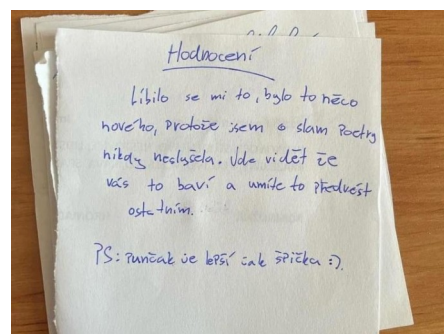 Hodnocení
Líbilo se mi to, bylo to něco
nového, protože jsem o slam poetry
nikdy neslyšela. Jde vidět že
vás to baví a umíte to předvést
ostatním.
PS: punčák je lepší jak špička :).